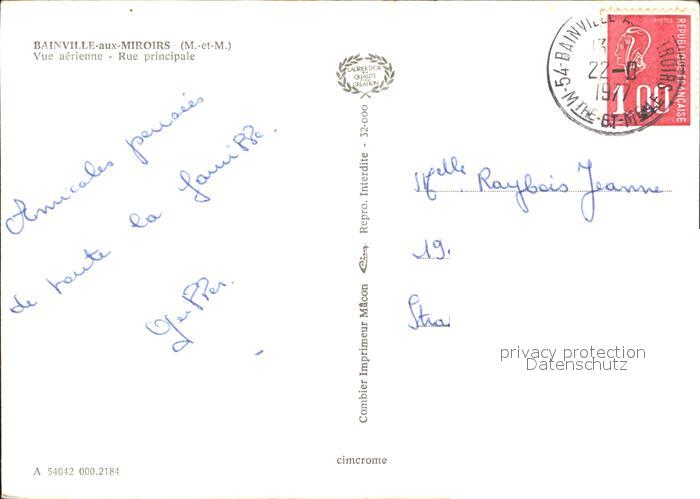 BAINVILLE-aux-MIROIRS (M.-et-M.)
Vue aérienne - Rue principale
Amicales pensées
de toute la famille.
A 54042 000.2184
LAURIER D'OR
QUALITÉ
CRÉATION
Combier Imprimeur Mâcon Cim Repro. Interdite - 32-000
cimcrome
54-BAINVILLE
22-8
197
MTHE-ET-MLLE
POSTES
REPUBLIQUE FRANÇAISE
1,00
Melle Raybois Jeanne
19.
Stra
privacy protection
Datenschutz